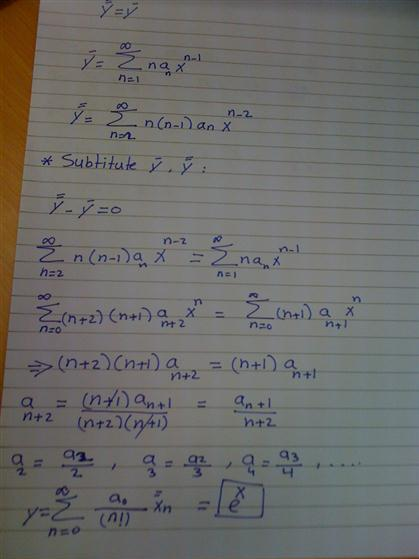 y̿ = y̅
y̅ = ∑_{n=1}^{∞} n a_n x^{n-1}
y̿ = ∑_{n=2}^{∞} n(n-1) a_n x^{n-2}
* Subtitute y̅ , y̿ :
y̿ - y̅ = 0
∑_{n=2}^{∞} n(n-1) a_n x^{n-2} = ∑_{n=1}^{∞} n a_n x^{n-1}
∑_{n=0}^{∞} (n+2)(n+1) a_{n+2} x^n = ∑_{n=0}^{∞} (n+1) a_{n+1} x^n
⇒ (n+2)(n+1) a_{n+2} = (n+1) a_{n+1}
a_{n+2} = (n+1) a_{n+1} / (n+2)(n+1) = a_{n+1} / n+2
a_2 = a_2/2 , a_3 = a_2/3 , a_4 = a_3/4 , ....
y = ∑_{n=0}^{∞} a_0/(n!) x̿_n = e^x